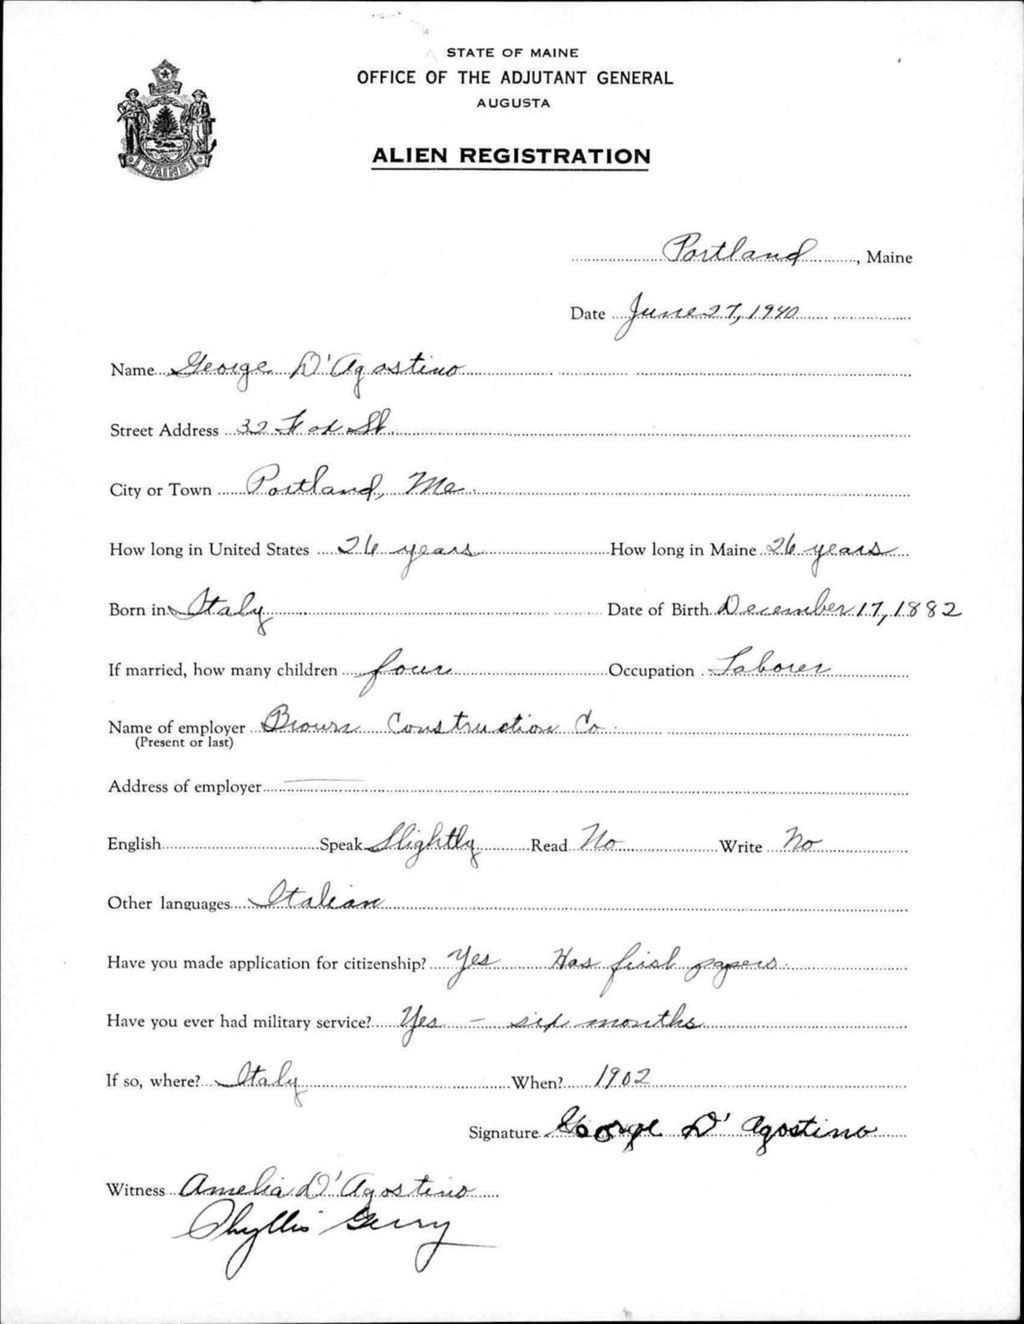 STATE OF MAINE
OFFICE OF THE ADJUTANT GENERAL
AUGUSTA
ALIEN REGISTRATION
MAINE
Portland, Maine
Date June 27, 1940
Name George D'Agostino
Street Address 32 Fox St.
City or Town Portland, Me.
How long in United States 26 years How long in Maine 26 years
Born in Italy Date of Birth December 17, 1882
If married, how many children four Occupation Laborer
Name of employer Brown Construction Co.
(Present or last)
Address of employer
English Speak Slightly Read No Write No
Other languages Italian
Have you made application for citizenship? Yes Has first papers.
Have you ever had military service? Yes - six months
If so, where? Italy When? 1902
Signature George D'Agostino
Witness Amelia D'Agostino
Phyllis Gerry